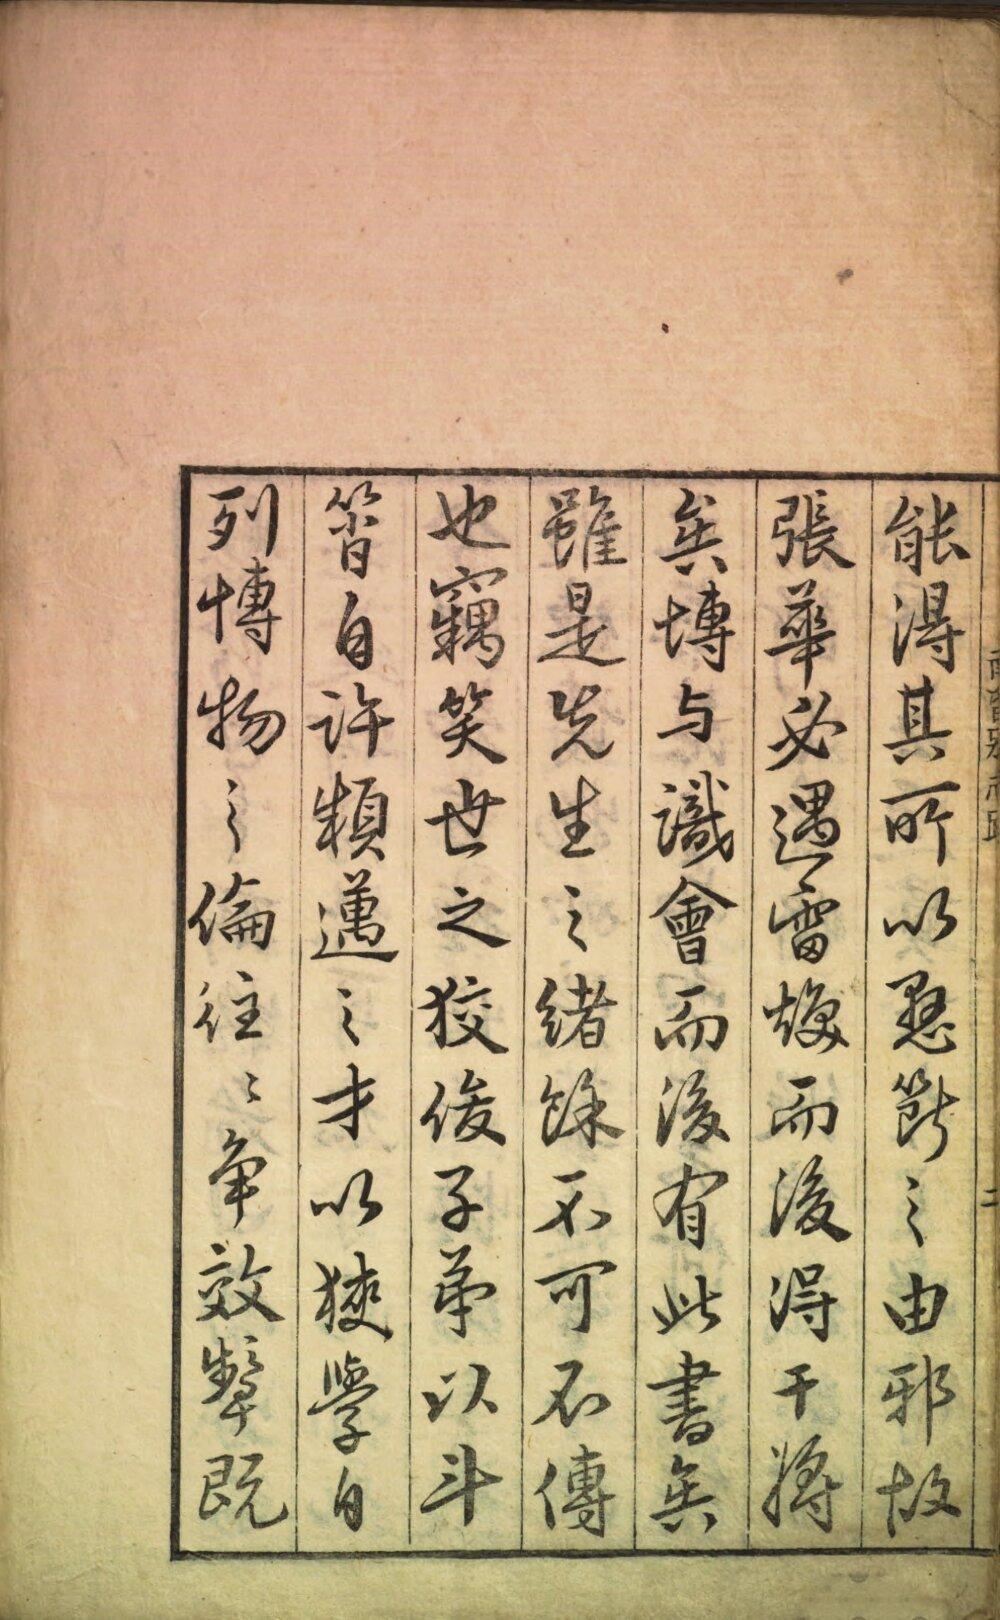 能得其所以懸斷之由邪故
張華必遇雷煥而後得干將
矣博与識會而後有此書矣
雖是先生之緒餘不可不傳
也竊笑世之狡俊子弟以斗
筲自許穎邁之才以狹學自
列博物之倫往〻爭效顰既